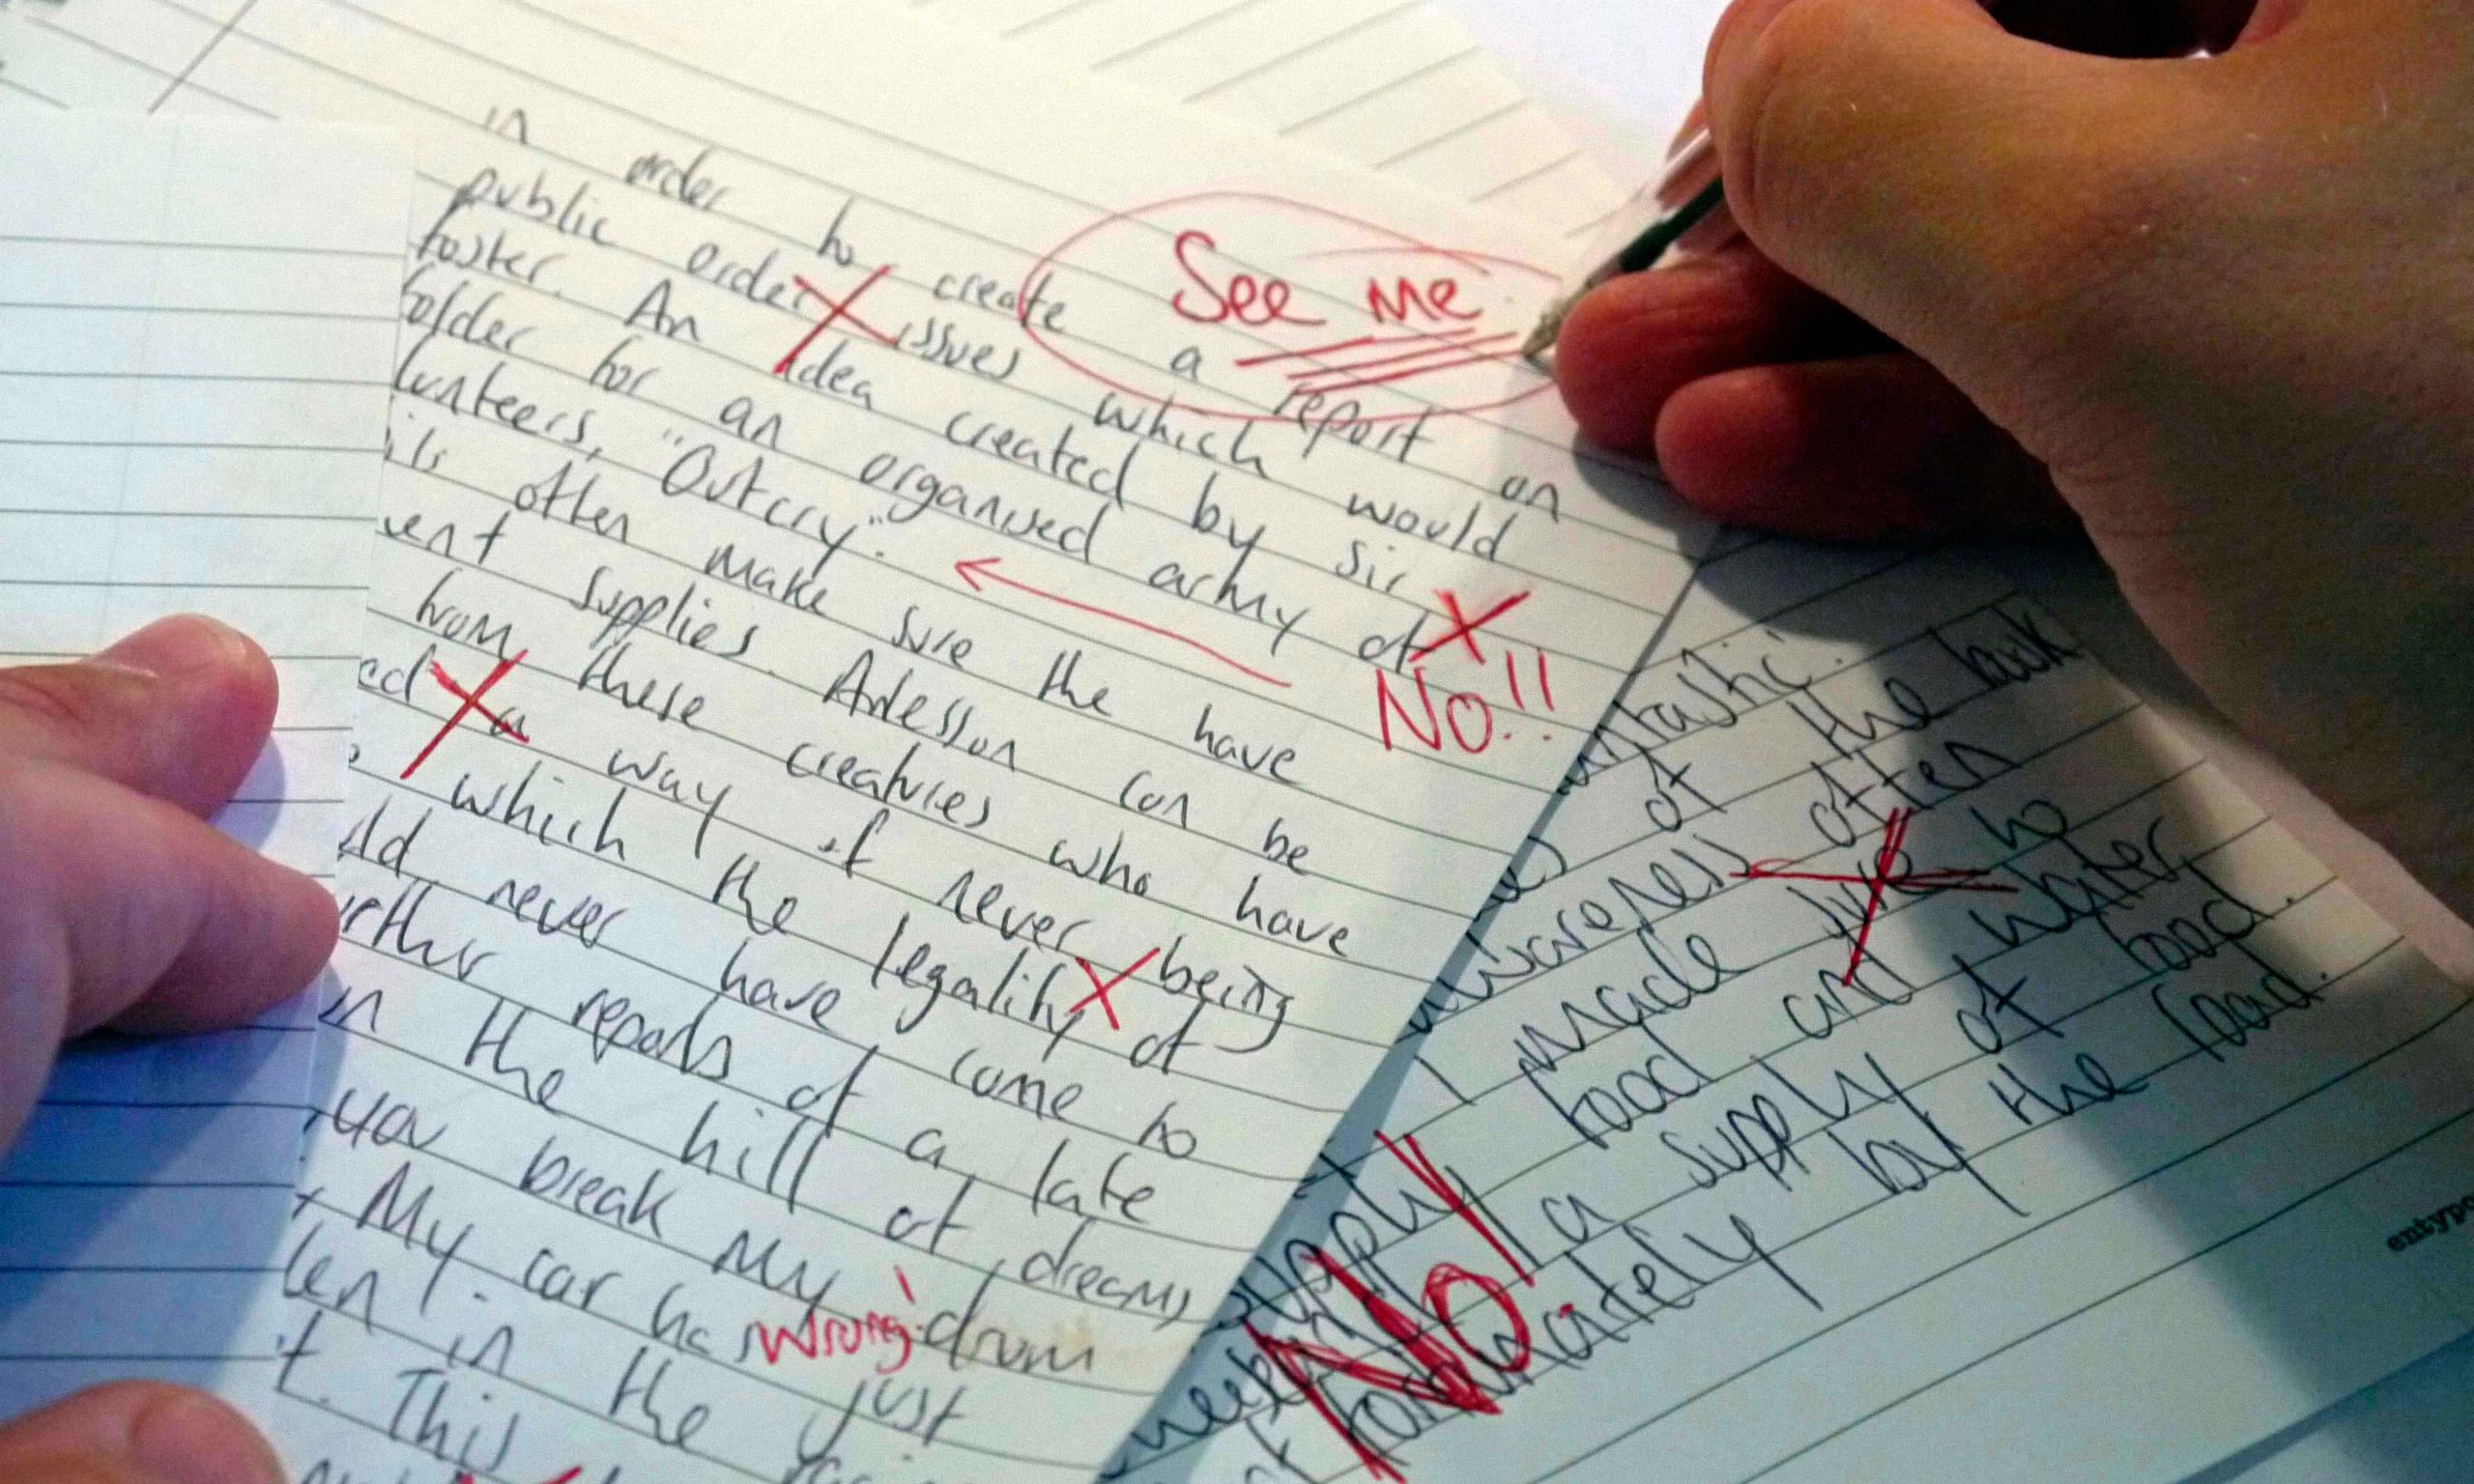 in order to create a report on
public order issues which would
foster. An idea created by sir
folder for an organised army of
lunteers, "Outcry".
ils often make sure the have
vent supplies. Ardesson can be
from these creatures who have
ed a way of never being
which the legality of
ld never have come to
urther reports of a late
in the hill of dreams
you break my drum
My car has just
len in the
t. This
See me
No!!
wrong
ntastic.
of the book
awareness often
I made sure to
food and water
supply a supply of food.
by the road.
No!
entypo